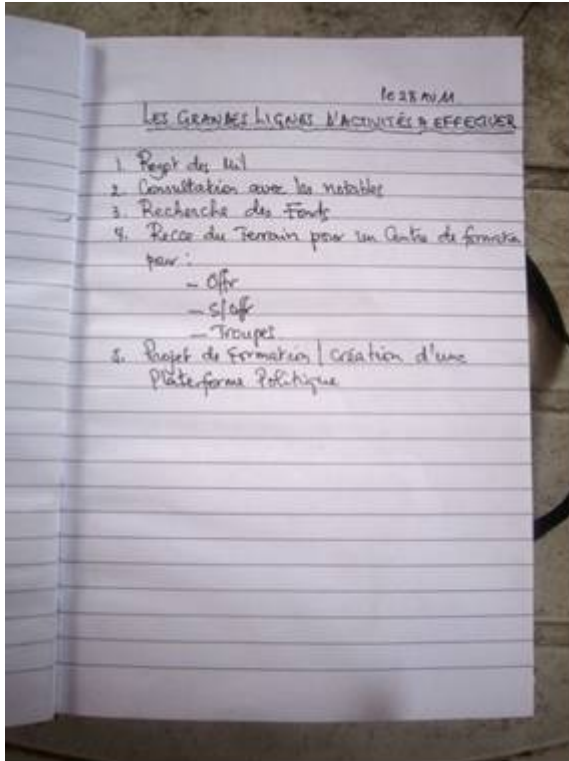 le 28 AV 11
LES GRANDES LIGNES D'ACTIVITÉS A EFFECTUER
1. des Mil
2. Consultation avec les notables
3. Recherche des Fonds
4. Recce du Terrain pour un Centre de formation
pour :
- Offr
- S/Offr
- Troupes
5. Projet de Formation / Création d'une
Plateforme Politique